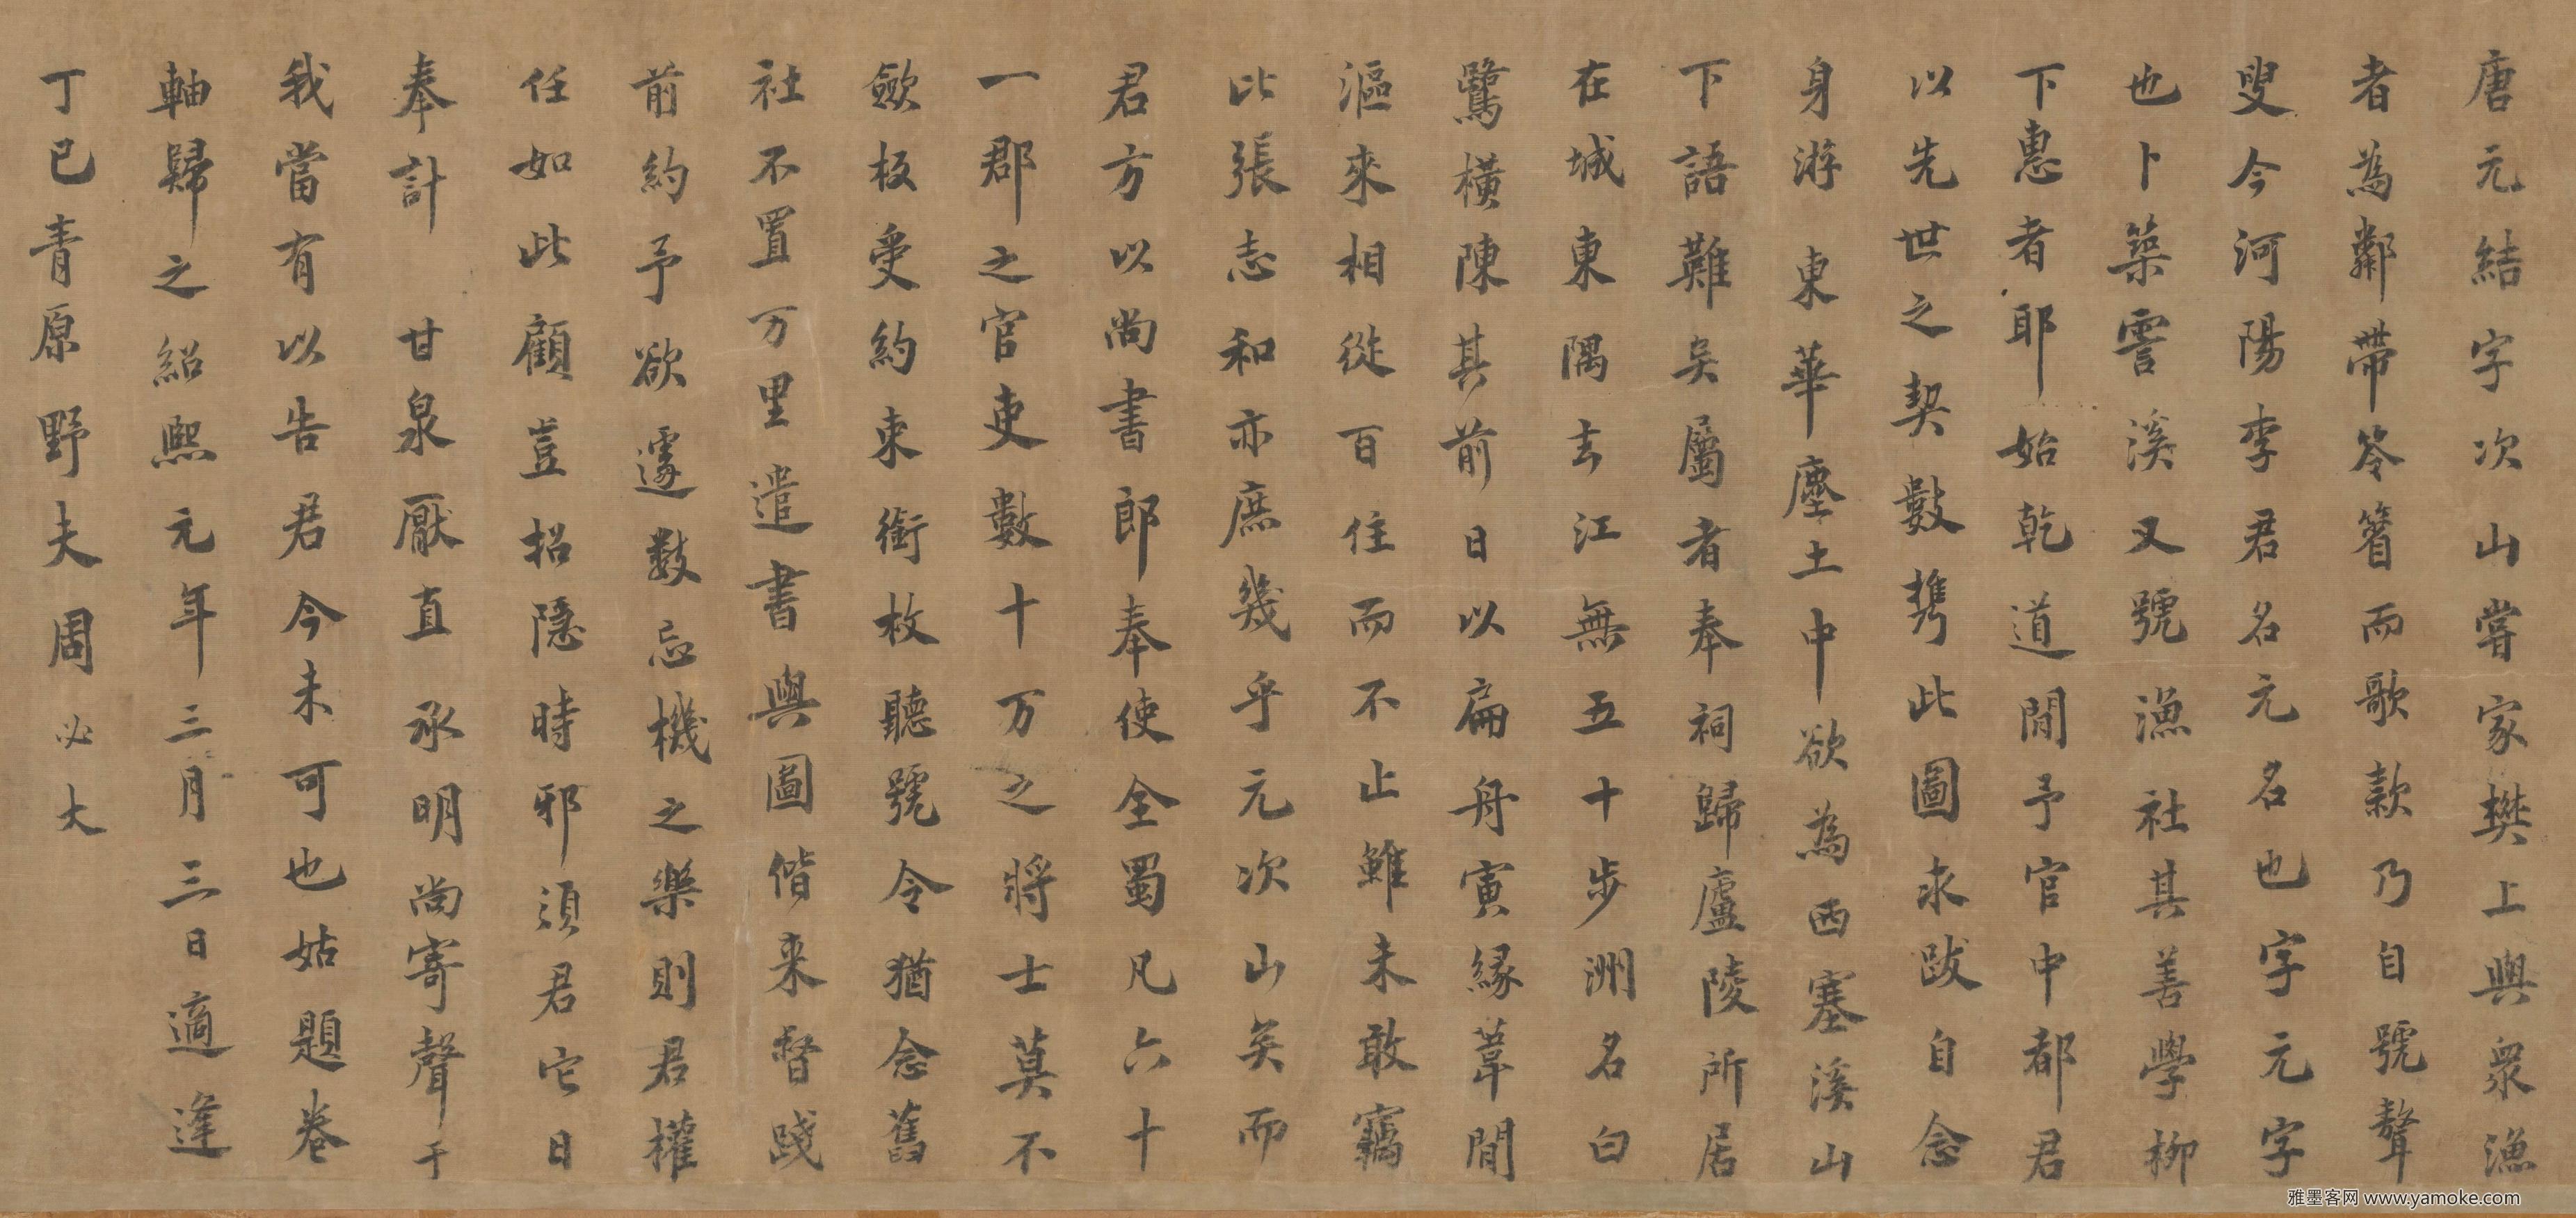 唐元結字次山嘗家樊上與衆漁
者為鄰帶笭箵而歌款乃自號聱
叟今河陽李君名元名也字元字
也卜築霅溪又號漁社其善學柳
下惠者耶始乾道間予官中都君
以先世之契數携此圖求跋自念
身游東華塵土中欲為西塞溪山
下語難矣屬者奉祠歸廬陵所居
在城東隅去江無五十步洲名白
鷺橫陳其前日以扁舟寅緣葦間
漚來相從百住而不止雖未敢竊
比張志和亦庶幾乎元次山矣而
君方以尚書郎奉使全蜀凡六十
一郡之官吏數十万之將士莫不
歛板受約束銜枚聽號令猶念舊
社不置万里遣書與圖偕来督踐
前約予欲遽數忘機之樂則君權
任如此顧豈招隱時邪須君它日
奉計 甘泉厭直承明尚寄聲于
我當有以告君今未可也姑題卷
軸歸之紹熙元年三月三日適逢
丁巳青原野夫周必大
雅墨客网 www.yamoke.com